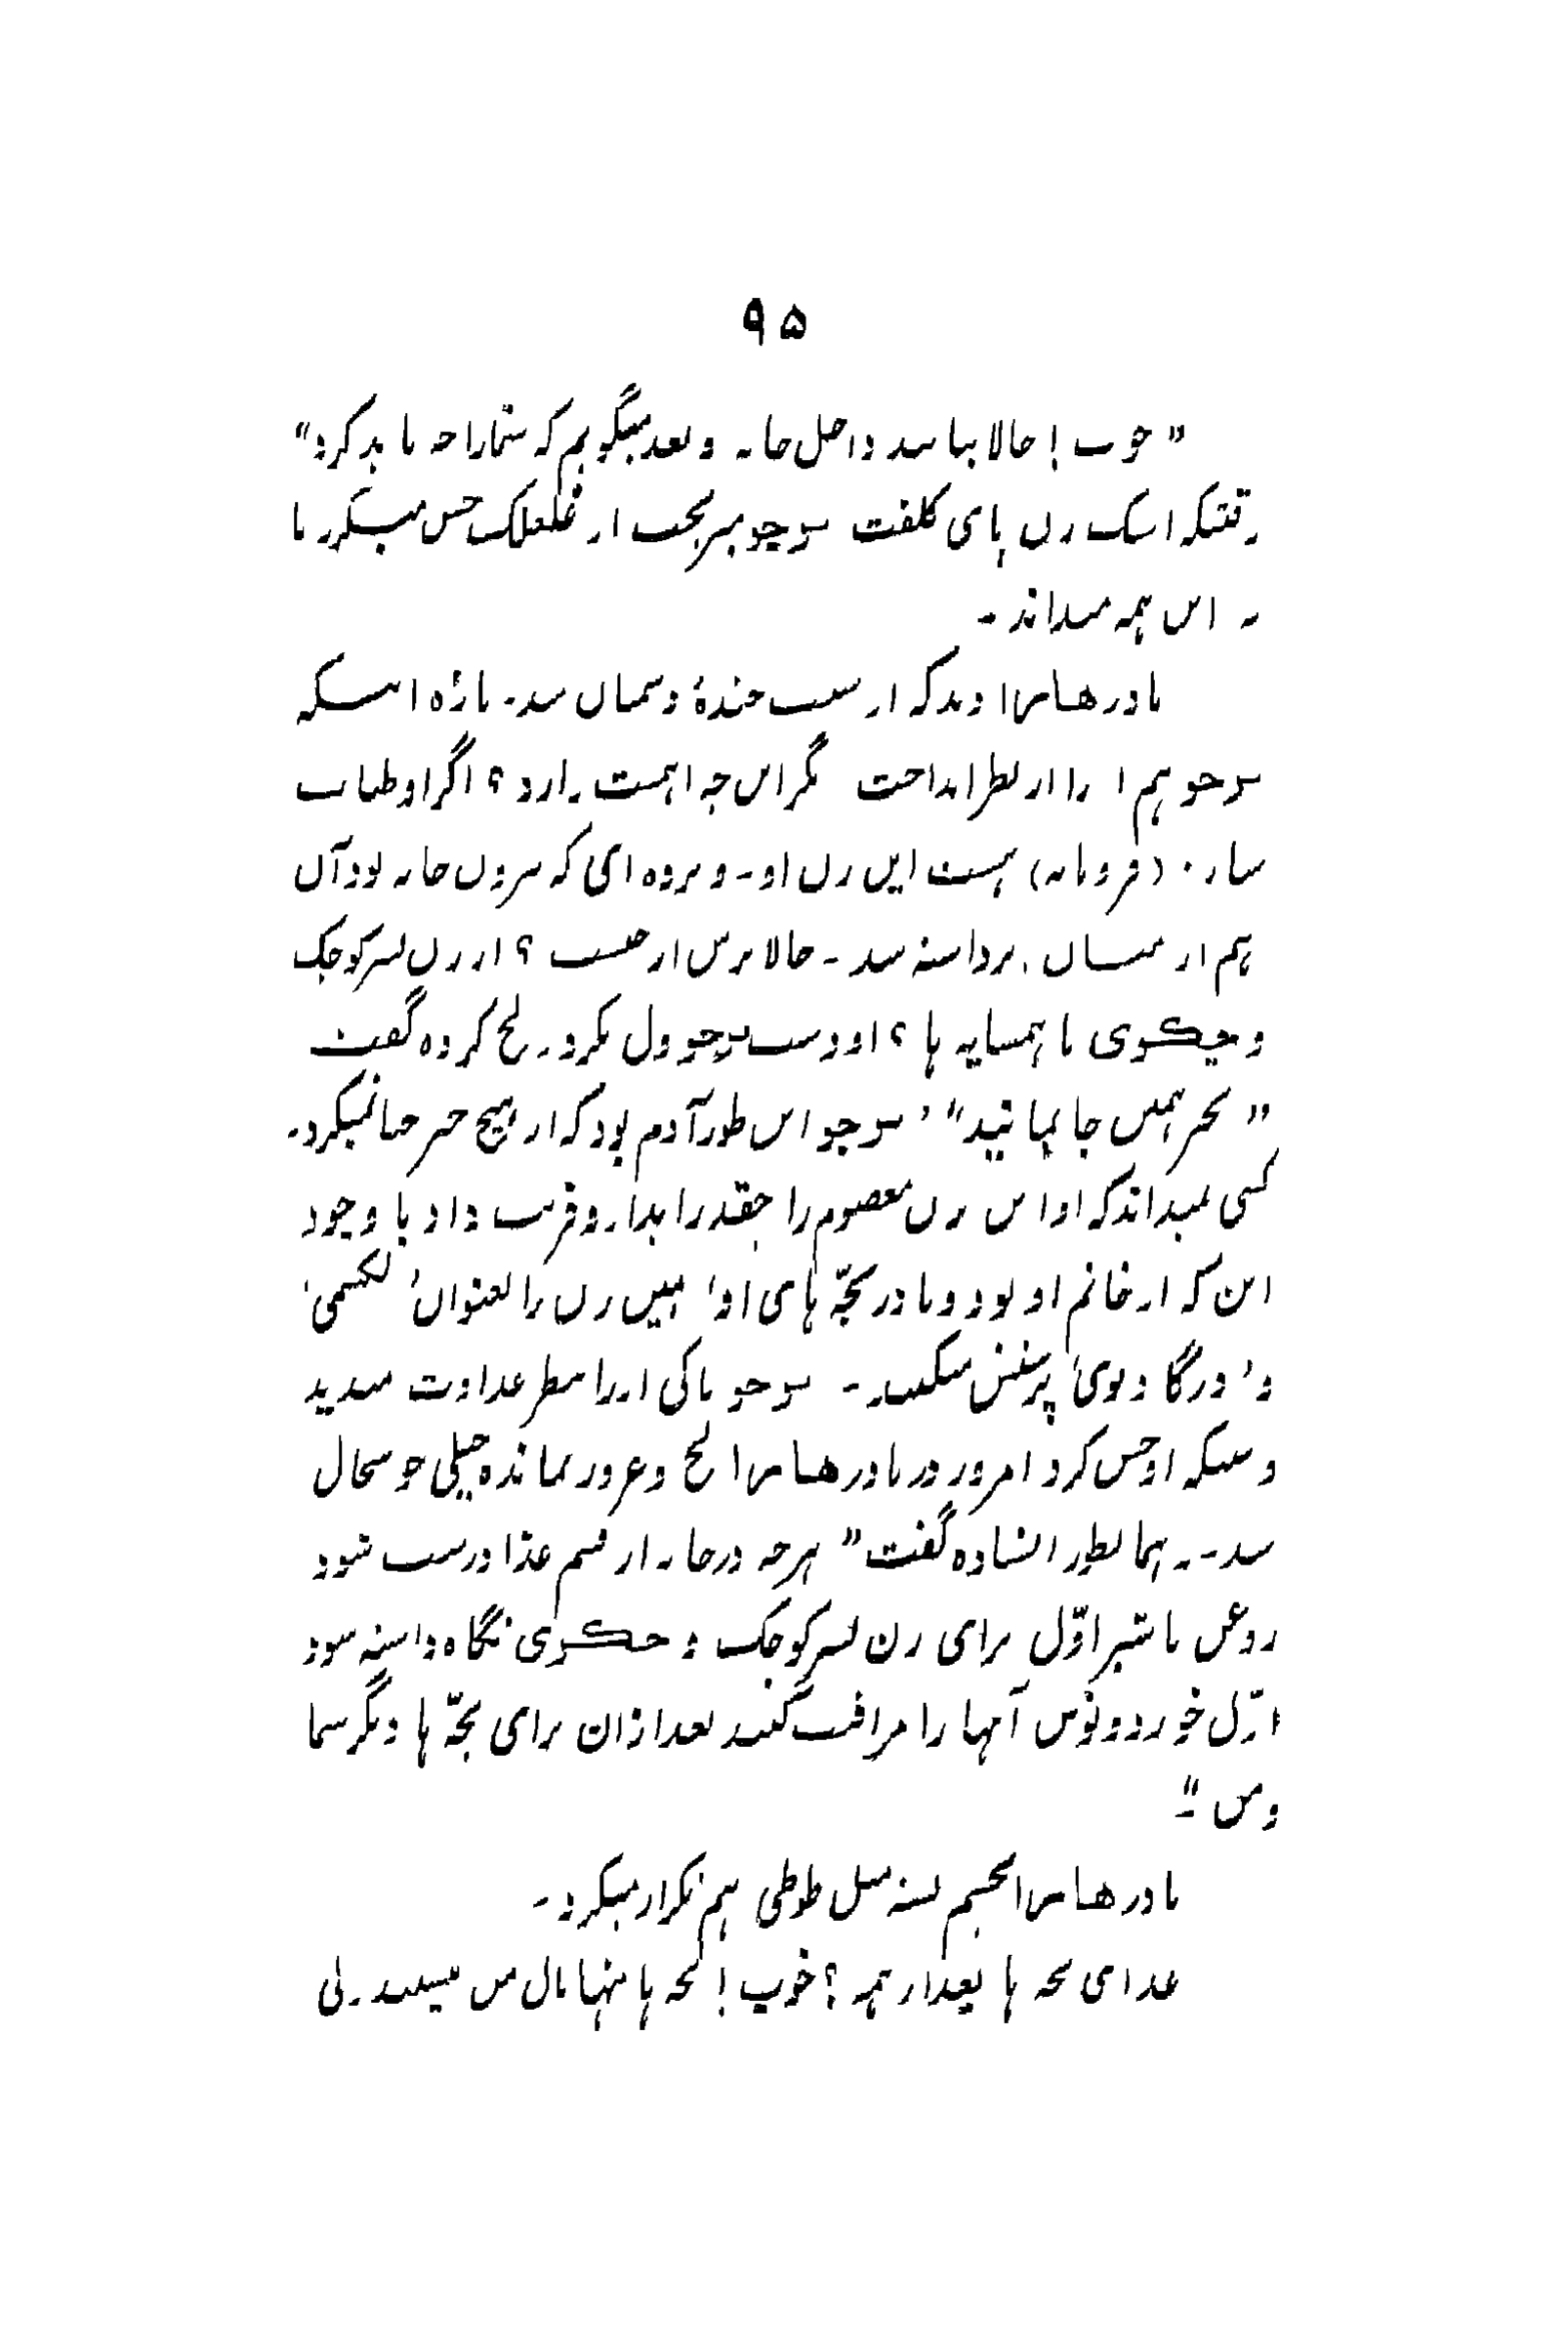 ۹۵
"خوب! حالا بیائید داخل خانه و بعد میگویم که شمارا چه باید کرد"
وقتیکه اینک زن پای کلفت سوجو از غلغلک حس میکرد یا
نه این همه میداند۔
مادر هاسرا دید که از سبب خندهٔ دشمنان شد۔ تازه اینکه
سوجو هم او را از نظر انداخت مگر این چه اهمیت دارد؟ اگر او
(فرومایه) هست این زن او۔ و پرده ای که بیرون خانه بود آن
هم از میان برداشته شد۔ حالا ترس از چیست؟ از زن پسر کوچک
و چکوی یا همسایه ها؟ او دست سوجو ول نکرد۔ لج کرده گفت
همین جا بمانید"، سوجو این طور آدم بود که از هیچ چیز حیا نمیکرد۔
کسی نمیداند که او این زن معصوم را چقدر ایذا و فریب داد با وجود
این که از خانم او بود و مادر بچّه های او، همین زن را بعنوان 'لکسمی'
و 'درگا دیوی' پرستش میکنند۔ سوجو باکی او را بنظر عداوت میدید
وقتیکه او حس کرد امروز در مادر هاسرا لج و غرور نمانده خیلی خوشحال
شد۔ همانطور ایستاده گفت "هرچه در خانه از قسم غذا درست شود
روغن یا شیر اوّل برای زن پسر کوچک و چکوی نگاه داشته شود
اوّل خورد و نوش آنها را مراقبت کنید بعد ازان برای بچّه ها دیگر شما
و من"۔
مادر هاسرا چشم بسته مثل طوطی هم تکرار میکرد۔
غذای بچه ها بعد از همه؟ خوب! بچه ها تنها مال من نیستند۔ ولی